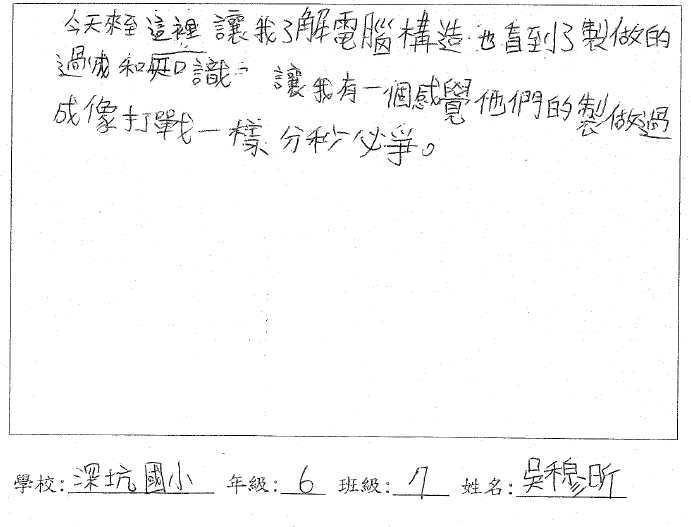 今天來至這裡讓我了解電腦構造.也看到了製做的
過成和知識。讓我有一個感覺他們的製做過
成像打戰一樣分秒必爭。
學校:深坑國小 年級:6 班級:7 姓名:吳穆昕